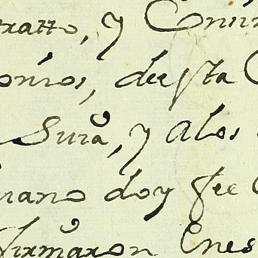 tratto, y
onios, desta
Sura, y alos
iano doy fee
firmaron